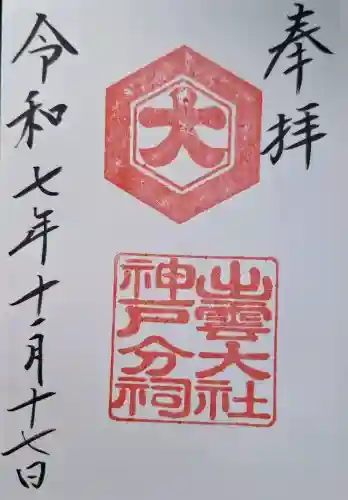 奉拝
大
出雲大社
神戸分祠
令和七年十一月十七日